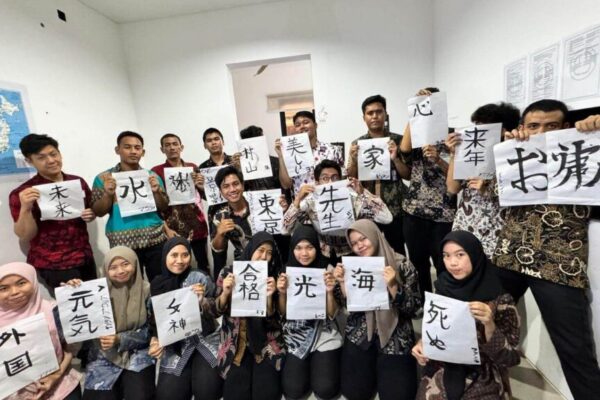 未来
水
山
美しい
家
心
来年
お
先生
外国
元気
女神
合格
光
海
死ぬ